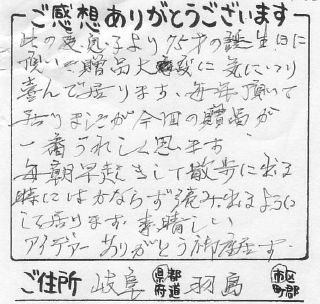 ご感想ありがとうございます
此の度息子より75才の誕生日に
頂いた贈品大変に気にいり
喜んで居ります、毎年頂いて
居りましたが今回の贈品が
一番うれしく思います
毎朝早起きして散歩に出る
時にはかならず読み出るように
して居ります 素晴しい
アイデアー ありがとう御座居ます
ご住所 岐阜 県都府道 羽島 市区町郡